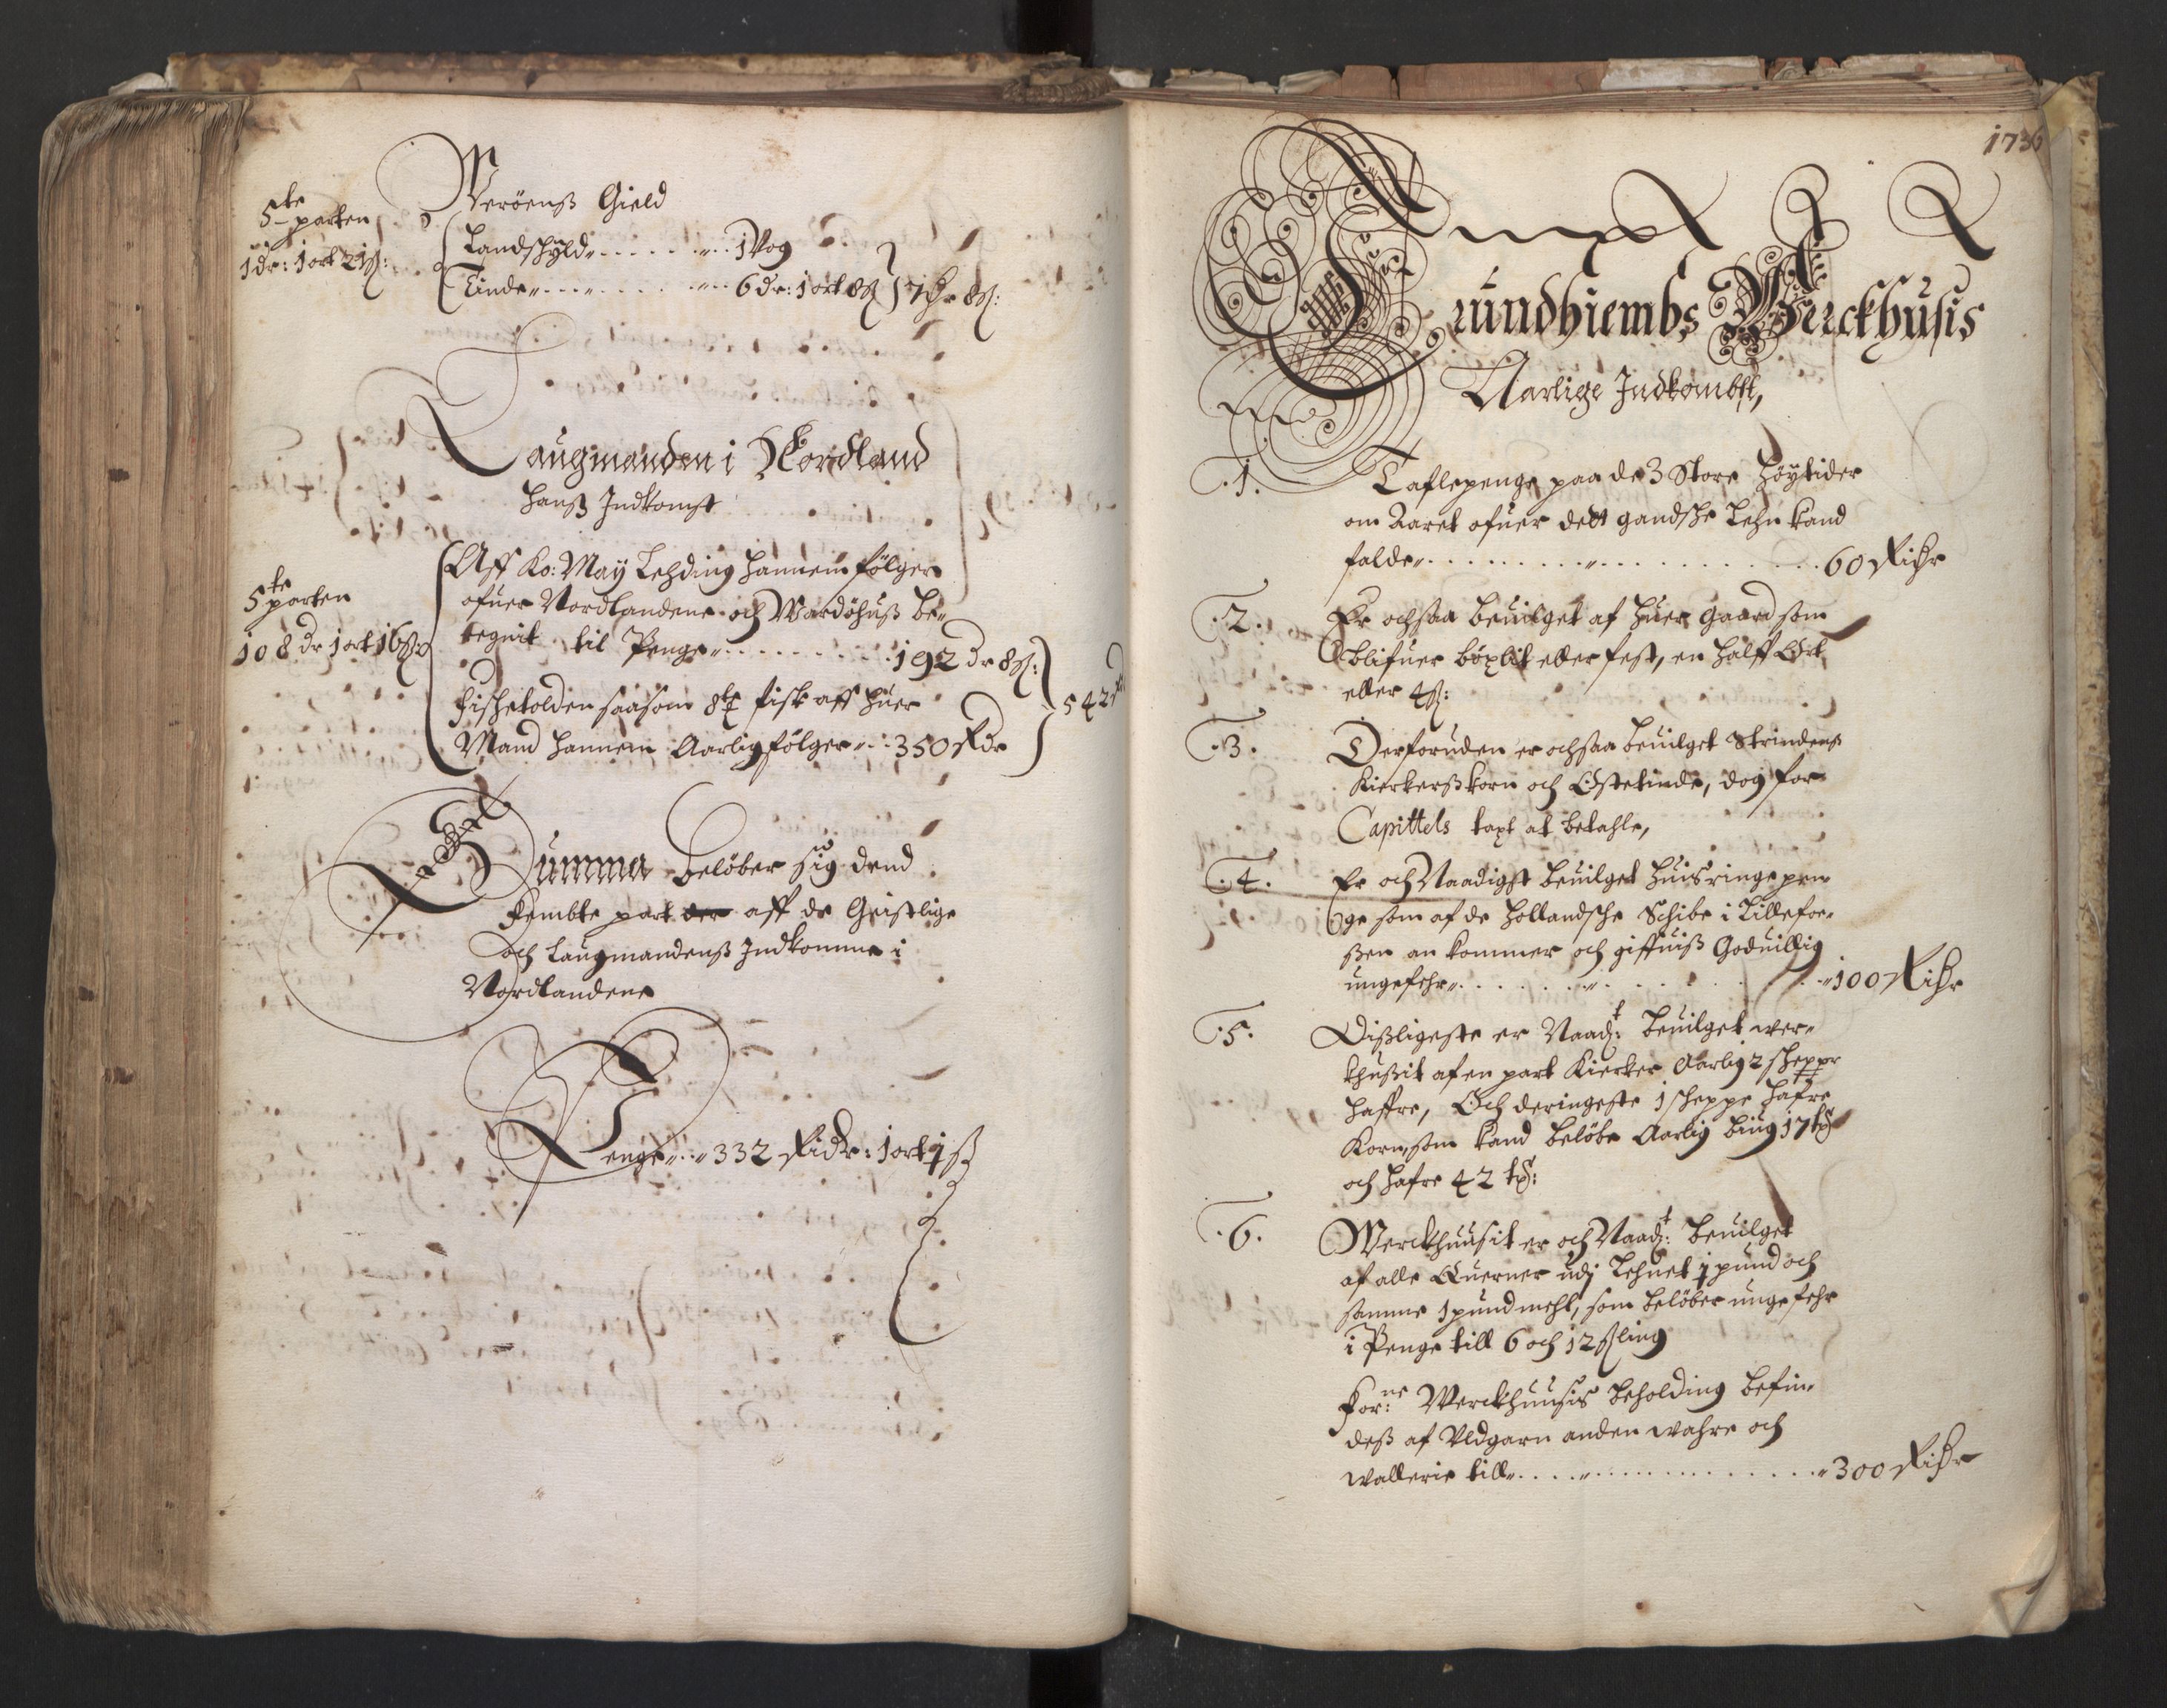 Verøenß Gield
5te parten
Landschyld 1 Vog
1 dr: 1 ort 21ß:
Tinde 6 dr: 1 ort 8ß 7 dr 8ß:
Laugmanden i Nordland
hanß Indkomst
Aff Ko: May Lehding hannem følger
5te parten
ofuer Nordlandene och Wardøhuß be-
108 dr 1 ort 16ß
regnit til Penge 192 dr 8ß:
542
fischetolden saasom 8te fisk aff huer
Mand hannem Aarlig følger 350 Rdr
Summa beløber sig dend
Fembte part aff de Geistlige
och Laugmandenß Indkomme i
Nordlandene
Penge 332 Ridr: 1 ort 1 ß
1736
Trundhiembs Werckhusis
Aarlige Indkombst,
.1. Taflepenge paa de 3 Store Høytider
om Aaret ofuer dett gandsche Lehn kand
falde 60 Ridr
.2. Er ochsaa beuilget af huer gaard som
blifuer bøxlit eller fest, en halff Ort
eller 4ß:
.3. Derforuden er ochsaa beuilget Strindens
Kierkerß korn och Ostetinde, dog for
Capittels taxt at betahle,
.4. Er och Naadigst beuilget huisringe pen-
ge som af de Hollandsche Schibe i Lillefor-
ßen an kommer och giffuiß Goduillig
ungefehr 100 Ridr
.5. Dißligeste er Naad:t beuilget wer-
khußit af en part Kierker Aarlig 2 schepper
haffre, Och deringeste 1 scheppe hafre
Korn, som kand beløbe Aarlig biug 17 tr
och hafre 42 tr:
.6. Werckhuusit er och Naad:t beuilget
af alle Querner udj Lehnet 1 pund och
samme 1 pund mehl, som beløber ungefehr
i Penge till 6 och 12 ßling
For:ne Werckhuusis beholding befin-
deß af Uldgarn anden wahre och
wallerie till 300 Ridr